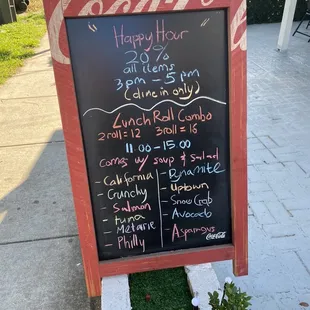 Happy Hour
20%
all items
3pm - 5pm
(dine in only)
Lunch Roll Combo
2roll = 12 3roll = 16
11:00 - 15:00
Comes w/ soup & salad
- California
- Crunchy
- Salmon
- Tuna
- Metarie
- Philly
- Dynamite
- Uptown
- Snow Crab
- Avocado
- Asparagus
Coca-Cola